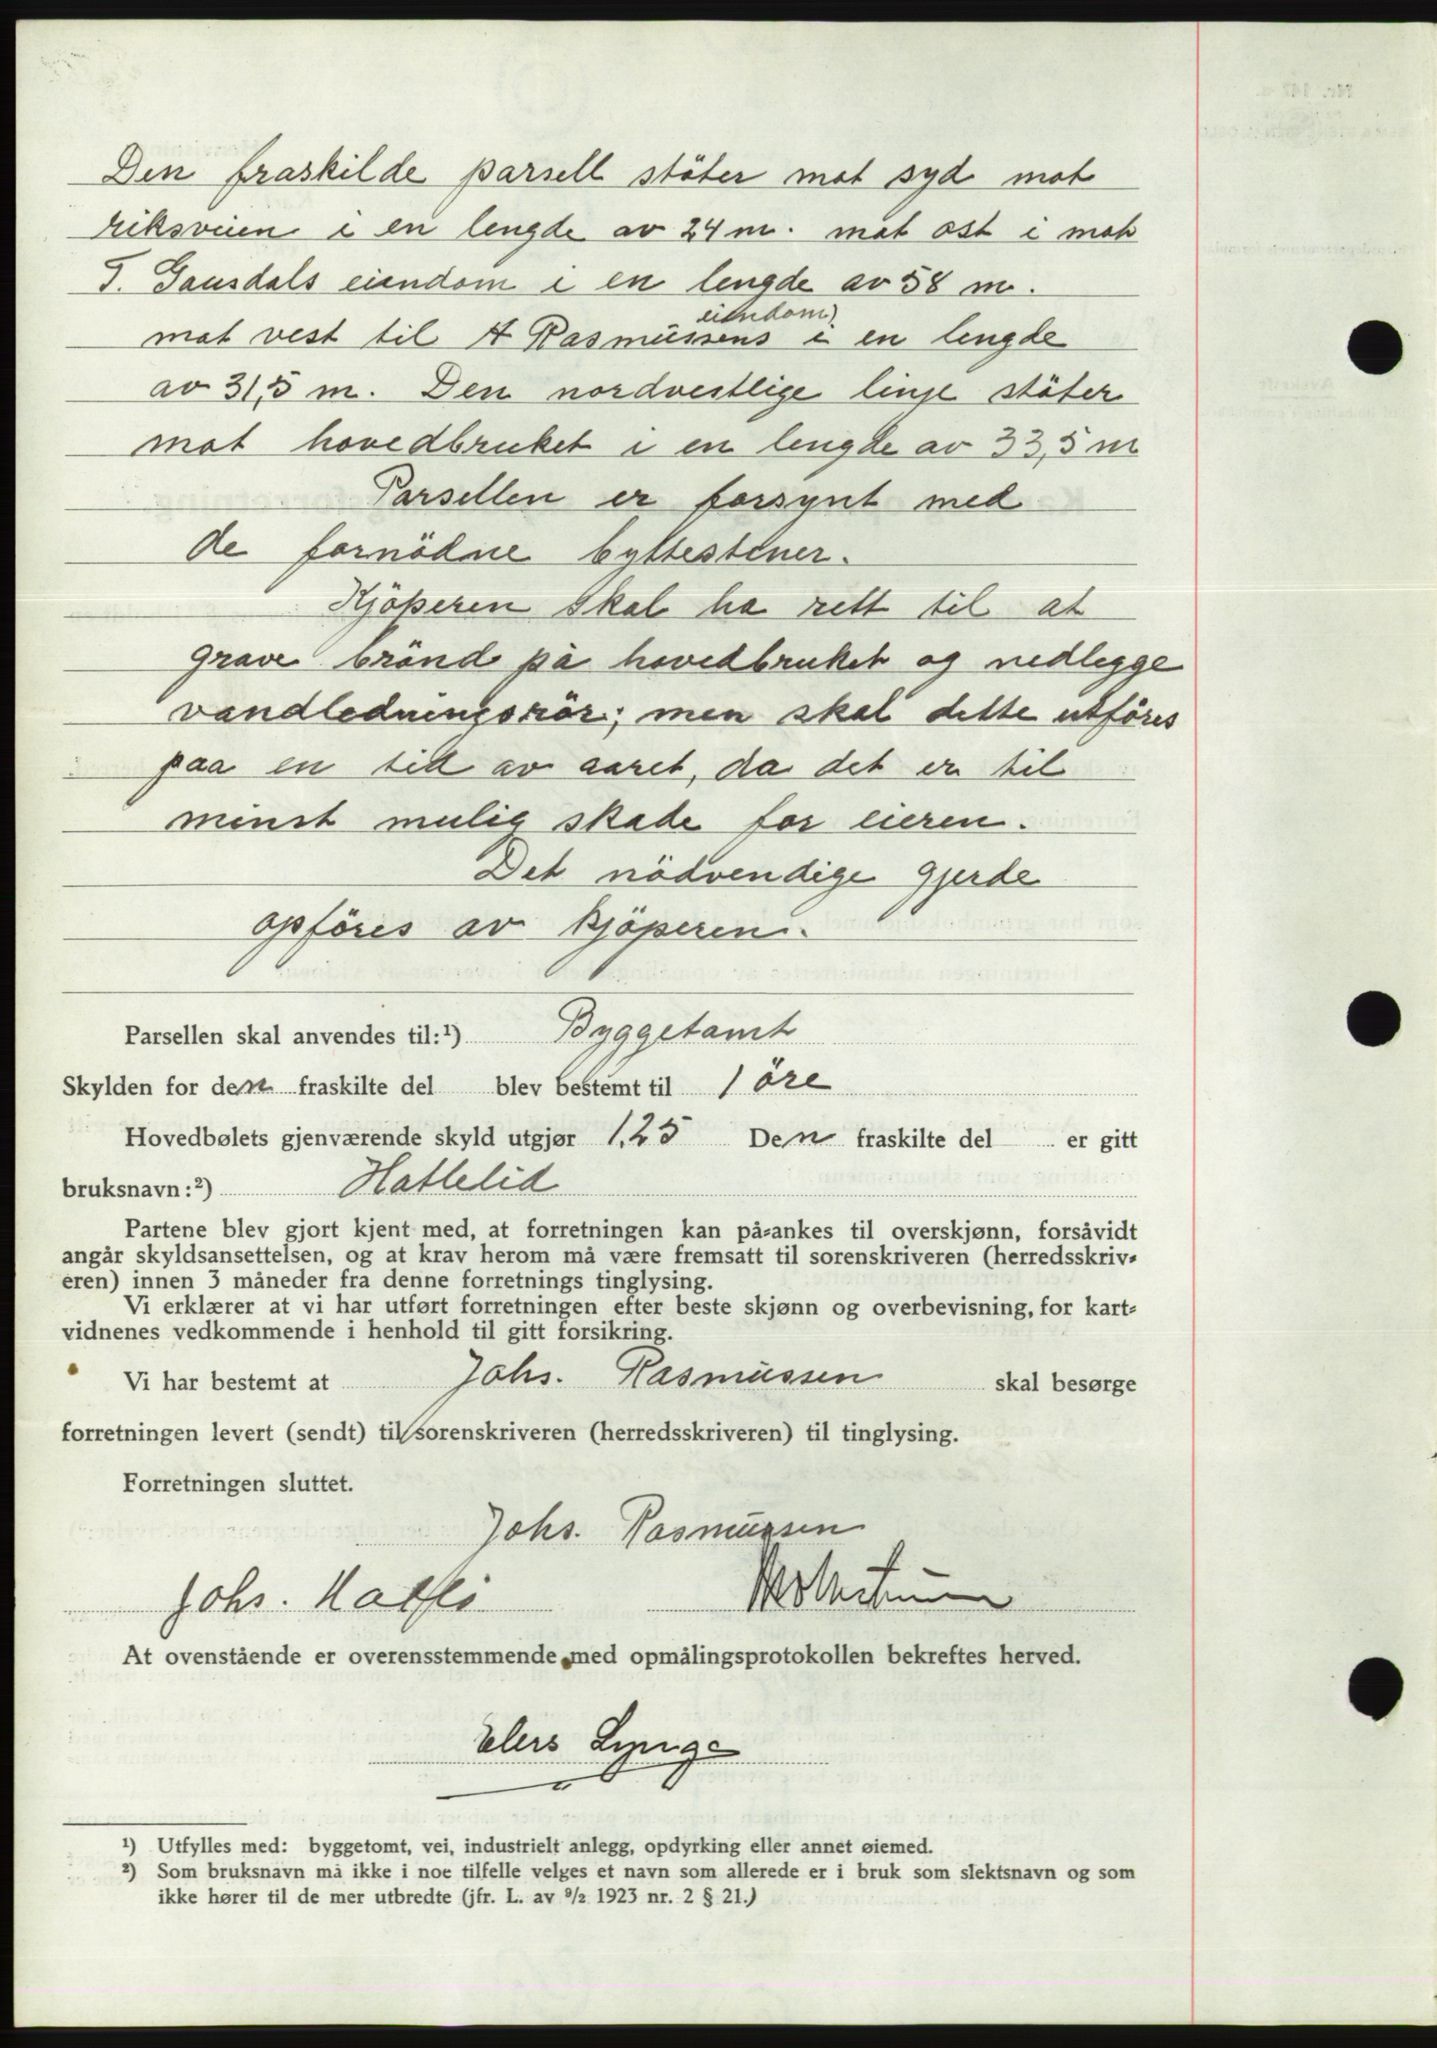 Den fraskilde parsell stöter mot syd mot
riksveien i en lengde av 24 m. mot ost i mot
T. Gausdals eiendom i en lengde av 58 m.
eiendom
mot vest til A Rasmussens i en lengde
av 31,5 m. Den nordvestlige linje stöter
mot hovedbruket i en lengde av 33,5 m
Parsellen er forsynt med
de fornödne byttestener.
Kjöperen skal ha rett til at
grave brönd på hovedbruket og nedlegge
vandledningsrör; men skal dette utföres
paa en tid av aaret, da det er til
minst mulig skade for eieren.
Det nödvendige gjerde
opföres av kjöperen.
Parsellen skal anvendes til:¹) Byggetomt
Skylden for den fraskilte del blev bestemt til 1 öre
Hovedbølets gjenværende skyld utgjør 1,25 Den fraskilte del er gitt
bruksnavn:²) Hatlelid
Partene blev gjort kjent med, at forretningen kan på-ankes til overskjønn, forsåvidt
angår skyldsansettelsen, og at krav herom må være fremsatt til sorenskriveren (herredsskriv-
eren) innen 3 måneder fra denne forretnings tinglysing.
Vi erklærer at vi har utført forretningen efter beste skjønn og overbevisning, for kart-
vidnenes vedkommende i henhold til gitt forsikring.
Vi har bestemt at Johs. Rasmussen skal besørge
forretningen levert (sendt) til sorenskriveren (herredsskriveren) til tinglysing.
Forretningen sluttet.
Johs. Rasmussen
Johs.
At ovenstående er overensstemmende med opmålingsprotokollen bekreftes herved.
Elers Lynge
¹) Utfylles med: byggetomt, vei, industrielt anlegg, opdyrking eller annet øiemed.
²) Som bruksnavn må ikke i noe tilfelle velges et navn som allerede er i bruk som slektsnavn og som
ikke hører til de mer utbredte (jfr. L. av 9/2 1923 nr. 2 § 21.)